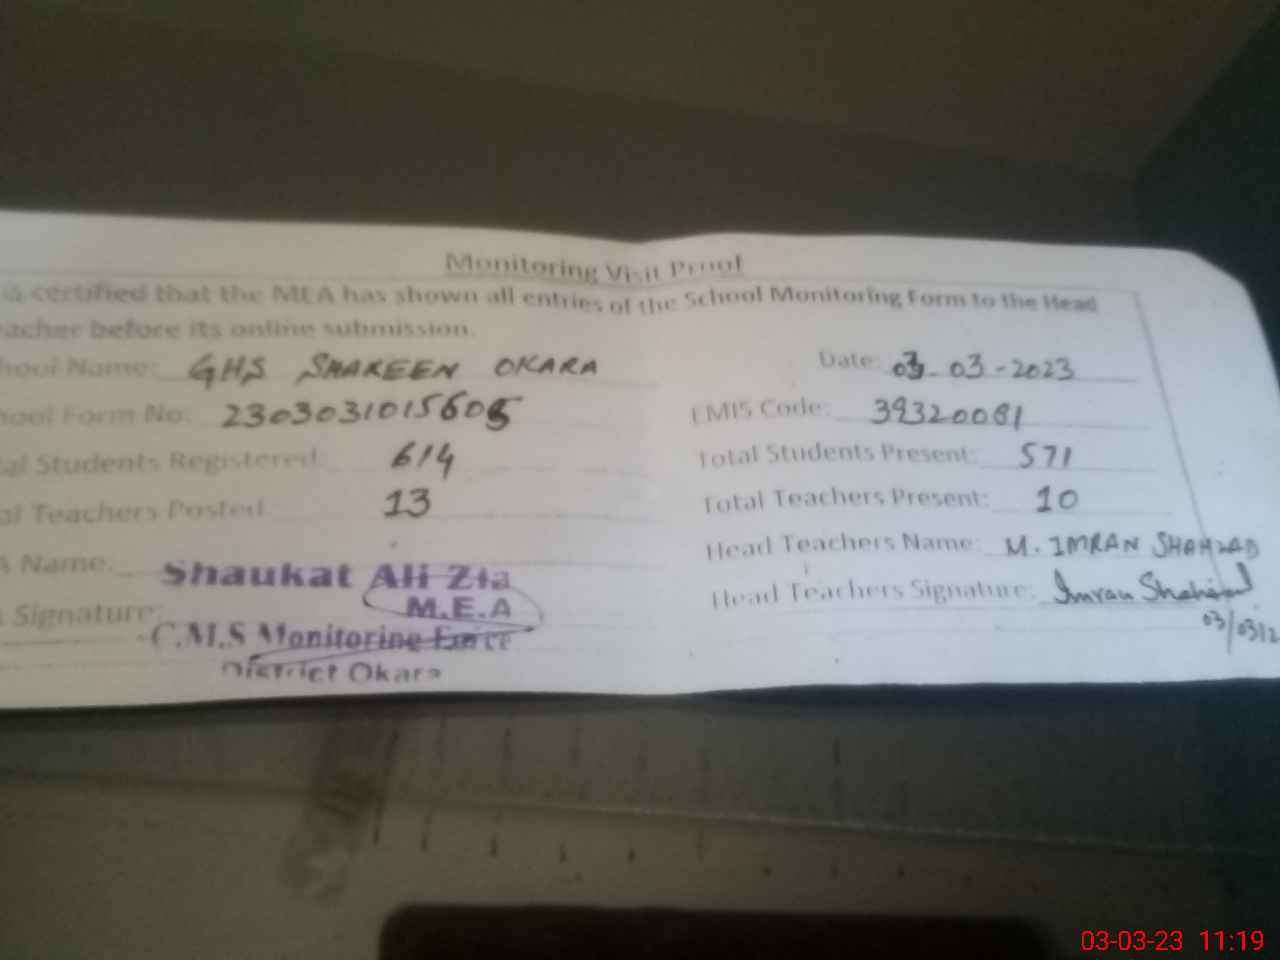 Monitoring Visit Proof
is certified that the MEA has shown all entries of the School Monitoring Form to the Head
eacher before its online submission.
hool Name: GHS SHAREEN OKARA Date: 03-03-2023
hool Form No: 2303031015605 EMIS Code: 39320081
al Students Registered 614 Total Students Present: 571
al Teachers Posted 13 Total Teachers Present: 10
A Name: Shaukat Ali Zia Head Teachers Name: M. IMRAN SHAHZAD
M.E.A
Signature: Head Teachers Signature: Imran Shahzad
C.M.S Monitoring Force 03/03/2
District Okara
03-03-23 11:19